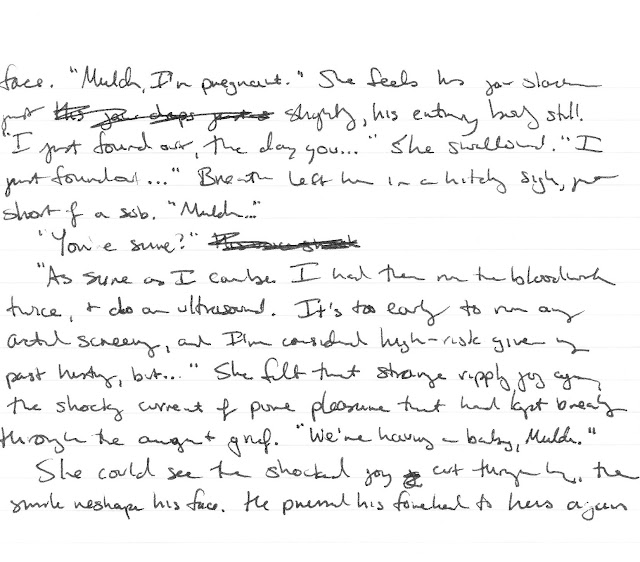 face. "Mulder, I'm pregnant." She feels his jaw slacken
just his jaw drops just a slightly, his entire body still.
"I just found out, the day you..." She swallowed. "I
just found out..." Breath left her in a hitchy sigh, just
short of a sob. "Mulder..."
"You're sure?"
"As sure as I can be. I had them run the bloodwork
twice, + do an ultrasound. It's too early to run any
actual screening, and I'm considered high-risk given my
past history, but..." She felt that strange ripply joy again,
the shocky current of pure pleasure that had kept breaking
through the anger + grief. "We're having a baby, Mulder."
She could see the shocked joy cut through him, the
smile reshape his face. He pressed his forehead to hers again